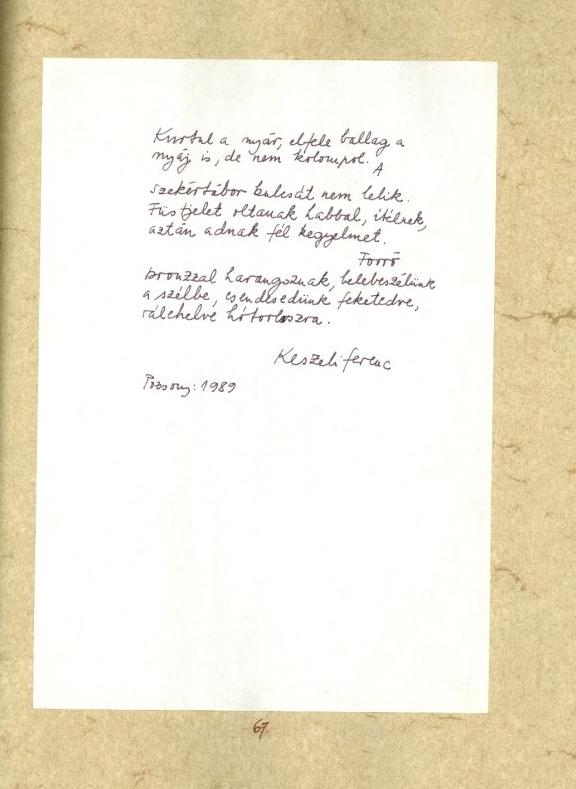 Kurtul a nyár, elfele ballag a
nyáj is, de nem kolompol. A
szekértábor kulcsát nem lelik.
Füstjelet oltanak habbal, itélnek,
aztán adnak fél kegyelmet.
Forró
bronzzal harangoznak, belebeszélünk
a szélbe, csendesedünk feketedve,
rálehelve hótorloszra.
Keszeli Ferenc
Pozsony: 1989
67.